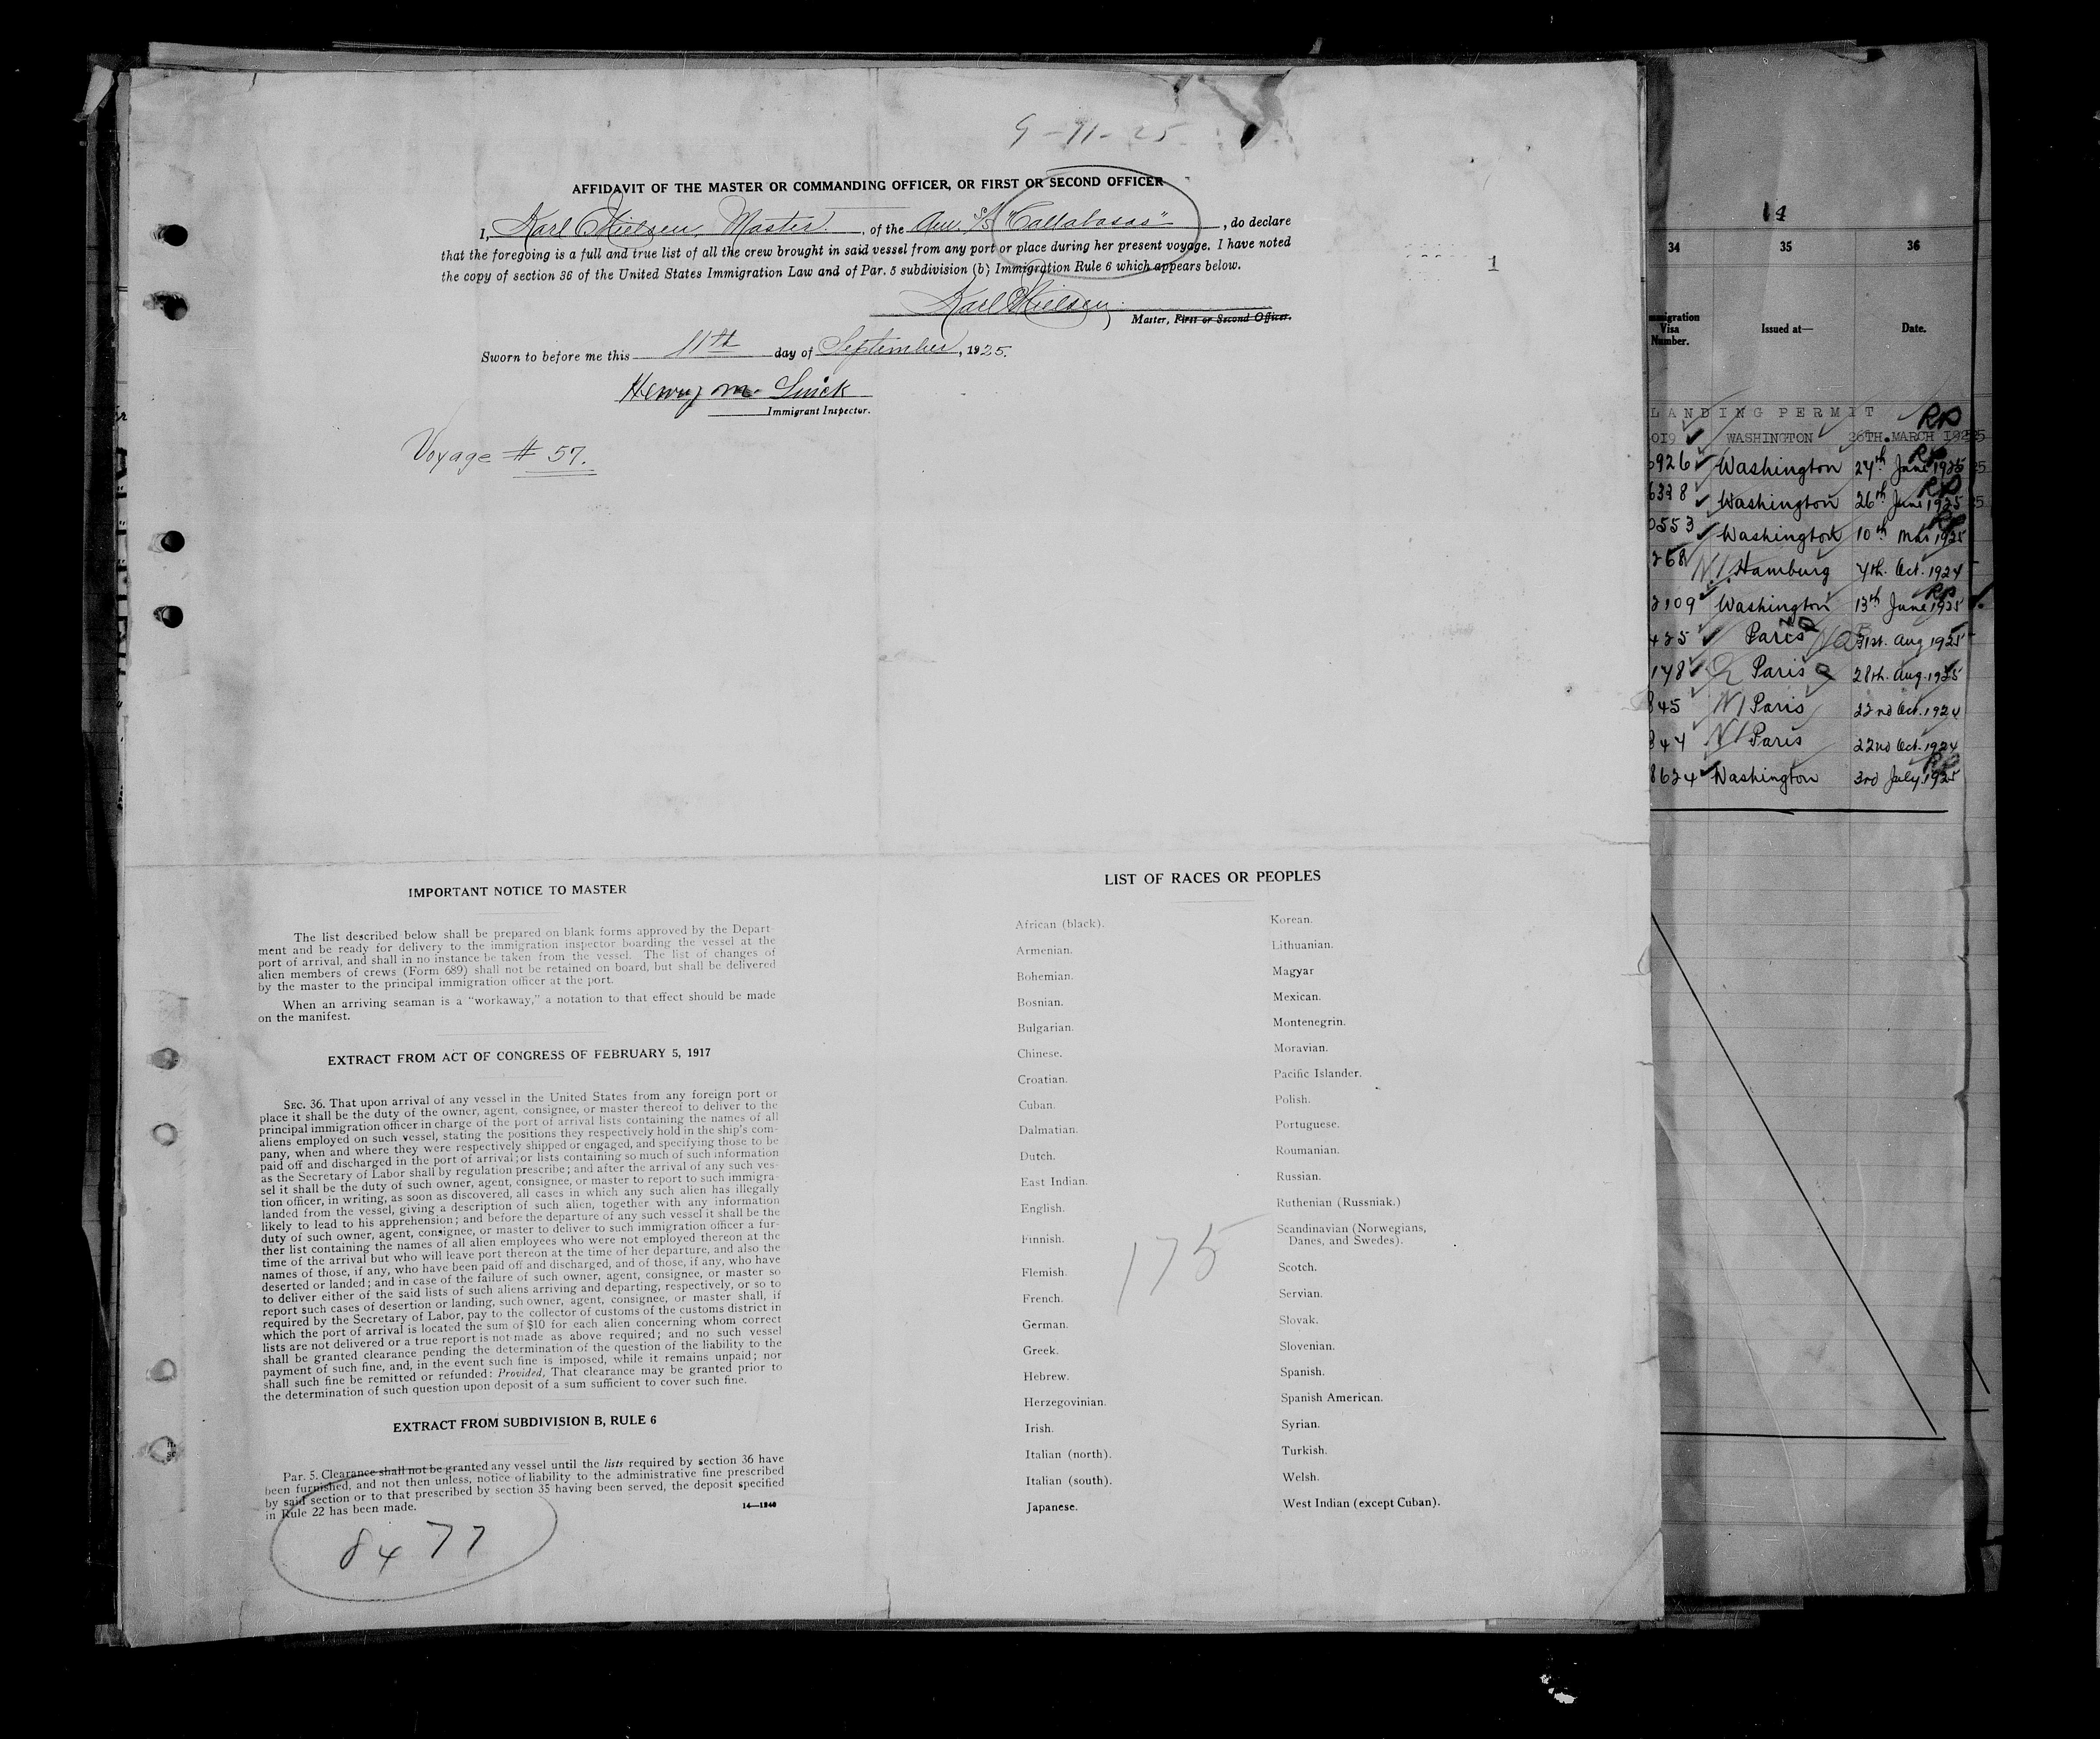 9-11-25
AFFIDAVIT OF THE MASTER OR COMMANDING OFFICER, OR FIRST OR SECOND OFFICER
I, Karl Nielsen, Master, of the Am. S/S "Callabasas", do declare
that the foregoing is a full and true list of all the crew brought in said vessel from any port or place during her present voyage. I have noted
the copy of section 36 of the United States Immigration Law and of Par. 5 subdivision (b) Immigration Rule 6 which appears below.
1
Karl Nielsen
Master, First or Second Officer.
Sworn to before me this 11th day of September, 1925.
Henry M.
Immigrant Inspector.
Voyage # 57.
IMPORTANT NOTICE TO MASTER
The list described below shall be prepared on blank forms approved by the Depart-
ment and be ready for delivery to the immigration inspector boarding the vessel at the
port of arrival, and shall in no instance be taken from the vessel. The list of changes of
alien members of crews (Form 689) shall not be retained on board, but shall be delivered
by the master to the principal immigration officer at the port.
When an arriving seaman is a "workaway," a notation to that effect should be made
on the manifest.
EXTRACT FROM ACT OF CONGRESS OF FEBRUARY 5, 1917
SEC. 36. That upon arrival of any vessel in the United States from any foreign port or
place it shall be the duty of the owner, agent, consignee, or master thereof to deliver to the
principal immigration officer in charge of the port of arrival lists containing the names of all
aliens employed on such vessel, stating the positions they respectively hold in the ship's com-
pany, when and where they were respectively shipped or engaged, and specifying those to be
paid off and discharged in the port of arrival; or lists containing so much of such information
as the Secretary of Labor shall by regulation prescribe; and after the arrival of any such ves-
sel it shall be the duty of such owner, agent, consignee, or master to report to such immigra-
tion officer, in writing, as soon as discovered, all cases in which any such alien has illegally
landed from the vessel, giving a description of such alien, together with any information
likely to lead to his apprehension; and before the departure of any such vessel it shall be the
duty of such owner, agent, consignee, or master to deliver to such immigration officer a fur-
ther list containing the names of all alien employees who were not employed thereon at the
time of the arrival but who will leave port thereon at the time of her departure, and also the
names of those, if any, who have been paid off and discharged, and of those, if any, who have
deserted or landed; and in case of the failure of such owner, agent, consignee, or master so
to deliver either of the said lists of such aliens arriving and departing, respectively, or so to
report such cases of desertion or landing, such owner, agent, consignee, or master shall, if
required by the Secretary of Labor, pay to the collector of customs of the customs district in
which the port of arrival is located the sum of $10 for each alien concerning whom correct
lists are not delivered or a true report is not made as above required; and no such vessel
shall be granted clearance pending the determination of the question of the liability to the
payment of such fine, and, in the event such fine is imposed, while it remains unpaid; nor
shall such fine be remitted or refunded: Provided, That clearance may be granted prior to
the determination of such question upon deposit of a sum sufficient to cover such fine.
EXTRACT FROM SUBDIVISION B, RULE 6
Par. 5. Clearance shall not be granted any vessel until the lists required by section 36 have
been furnished, and not then unless, notice of liability to the administrative fine prescribed
by said section or to that prescribed by section 35 having been served, the deposit specified
in Rule 22 has been made.
14—1240
8477
LIST OF RACES OR PEOPLES
African (black).
Armenian.
Bohemian.
Bosnian.
Bulgarian.
Chinese.
Croatian.
Cuban.
Dalmatian.
Dutch.
East Indian.
English.
Finnish.
Flemish.
French.
German.
Greek.
Hebrew.
Herzegovinian.
Irish.
Italian (north).
Italian (south).
Japanese.
Korean.
Lithuanian.
Magyar
Mexican.
Montenegrin.
Moravian.
Pacific Islander.
Polish.
Portuguese.
Roumanian.
Russian.
Ruthenian (Russniak.)
Scandinavian (Norwegians,
Danes, and Swedes).
Scotch.
Servian.
Slovak.
Slovenian.
Spanish.
Spanish American.
Syrian.
Turkish.
Welsh.
West Indian (except Cuban).
175
14
34 35 36
Visa
Number.
Issued at—
Date.
LANDING PERMIT RP
019 WASHINGTON 26TH. MARCH 1925
926 Washington 24th June 1925 RP
6328 Washington 26th June 1925 RP
0553 Washington 10th Mar 1925 RP
268 N.I. Hamburg 4th. Oct. 1924
2109 Washington 13th June 1925 RP
425 Paris 31st. Aug 1925
178 Paris 28th. Aug. 1925
845 NI Paris 22nd Oct. 1924
844 NI Paris 22nd Oct. 1924
8624 Washington 3rd July 1925 RP